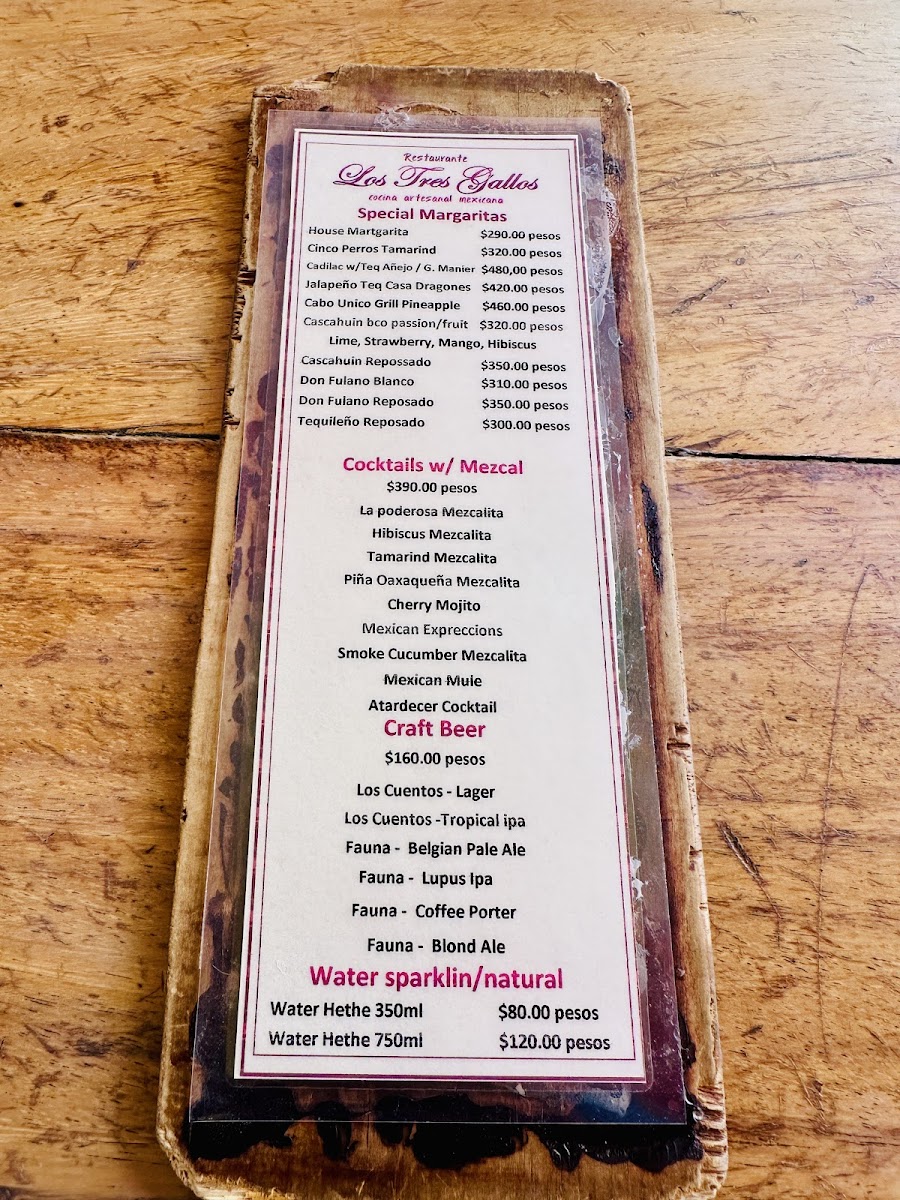 Restaurante
Los Tres Gallos
cocina artesanal mexicana
Special Margaritas
House Martgarita $290.00 pesos
Cinco Perros Tamarind $320.00 pesos
Cadilac w/Teq Añejo / G. Manier $480,00 pesos
Jalapeño Teq Casa Dragones $420.00 pesos
Cabo Unico Grill Pineapple $460.00 pesos
Cascahuin bco passion/fruit $320.00 pesos
Lime, Strawberry, Mango, Hibiscus
Cascahuin Repossado $350.00 pesos
Don Fulano Blanco $310.00 pesos
Don Fulano Reposado $350.00 pesos
Tequileño Reposado $300.00 pesos
Cocktails w/ Mezcal
$390.00 pesos
La poderosa Mezcalita
Hibiscus Mezcalita
Tamarind Mezcalita
Piña Oaxaqueña Mezcalita
Cherry Mojito
Mexican Expreccions
Smoke Cucumber Mezcalita
Mexican Mule
Atardecer Cocktail
Craft Beer
$160.00 pesos
Los Cuentos - Lager
Los Cuentos -Tropical ipa
Fauna - Belgian Pale Ale
Fauna - Lupus Ipa
Fauna - Coffee Porter
Fauna - Blond Ale
Water sparklin/natural
Water Hethe 350ml $80.00 pesos
Water Hethe 750ml $120.00 pesos